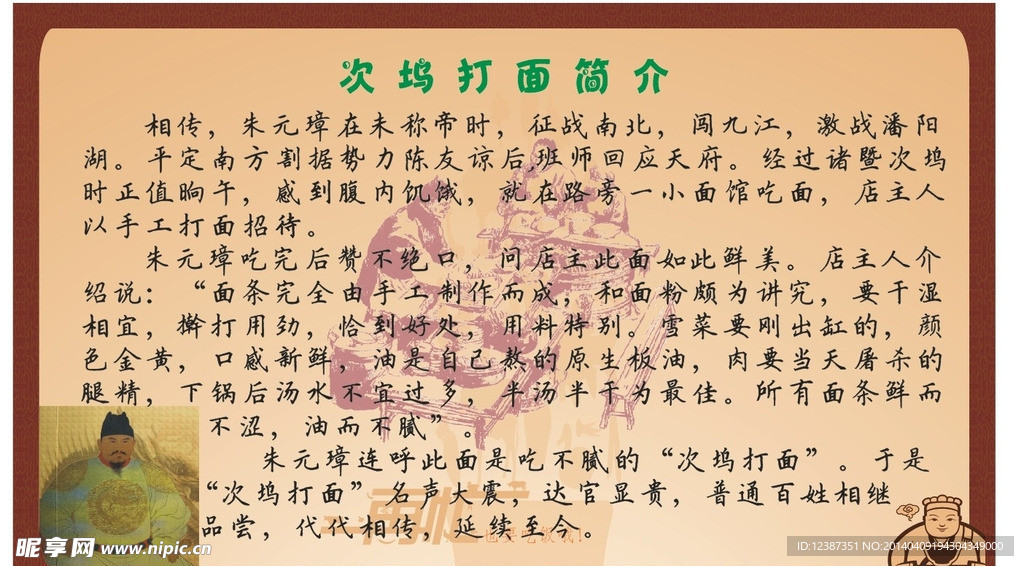 次坞打面简介
相传，朱元璋在未称帝时，征战南北，闯九江，激战潘阳
湖。平定南方割据势力陈友谅后,班师回应天府。经过诸暨次坞
时正值晌午，感到腹内饥饿，就在路旁一小面馆吃面，店主人
以手工打面招待。
朱元璋吃完后赞不绝口，问店主此面如此鲜美。店主人介
绍说：“面条完全由手工制作而成，和面粉颇为讲究，要干湿
相宜，擀打用劲，恰到好处，用料特别。雪菜要刚出缸的，颜
色金黄，口感新鲜，油是自己熬的原生板油，肉要当天屠杀的
腿精，下锅后汤水不宜过多，半汤半干为最佳。所有面条鲜而
不涩，油而不腻”。
朱元璋连呼此面是吃不腻的“次坞打面”。于是
“次坞打面”名声大震，达官显贵，普通百姓相继
品尝，代代相传，延续至今。
昵享网 www.nipic.cn
ID:12387351 NO:20140409194304349000